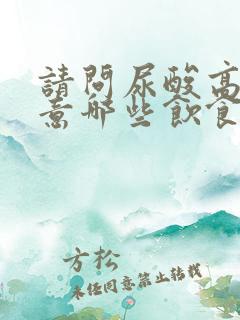 請問尿酸高
意哪些飲食
方松
未经同意禁止转载